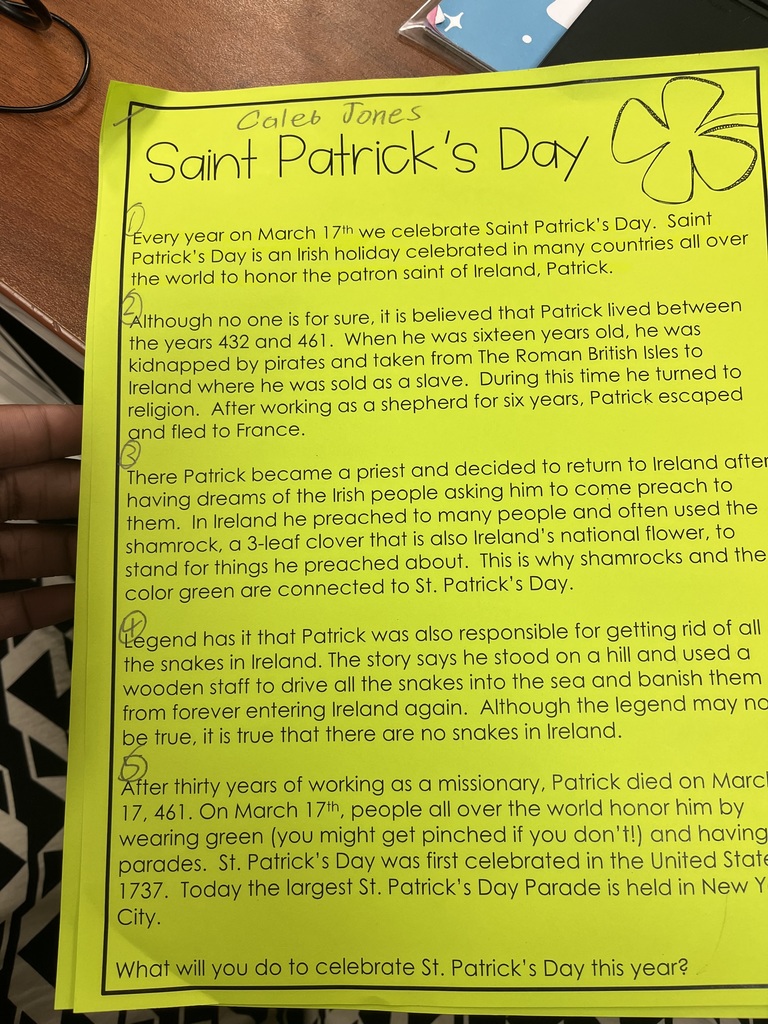 Caleb Jones
Saint Patrick's Day
①
Every year on March 17th we celebrate Saint Patrick's Day. Saint
Patrick's Day is an Irish holiday celebrated in many countries all over
the world to honor the patron saint of Ireland, Patrick.
②
Although no one is for sure, it is believed that Patrick lived between
the years 432 and 461. When he was sixteen years old, he was
kidnapped by pirates and taken from The Roman British Isles to
Ireland where he was sold as a slave. During this time he turned to
religion. After working as a shepherd for six years, Patrick escaped
and fled to France.
③
There Patrick became a priest and decided to return to Ireland after
having dreams of the Irish people asking him to come preach to
them. In Ireland he preached to many people and often used the
shamrock, a 3-leaf clover that is also Ireland's national flower, to
stand for things he preached about. This is why shamrocks and the
color green are connected to St. Patrick's Day.
④
Legend has it that Patrick was also responsible for getting rid of all
the snakes in Ireland. The story says he stood on a hill and used a
wooden staff to drive all the snakes into the sea and banish them
from forever entering Ireland again. Although the legend may no
be true, it is true that there are no snakes in Ireland.
⑤
After thirty years of working as a missionary, Patrick died on Marc
17, 461. On March 17th, people all over the world honor him by
wearing green (you might get pinched if you don't!) and having
parades. St. Patrick's Day was first celebrated in the United State
1737. Today the largest St. Patrick's Day Parade is held in New Y
City.
What will you do to celebrate St. Patrick's Day this year?